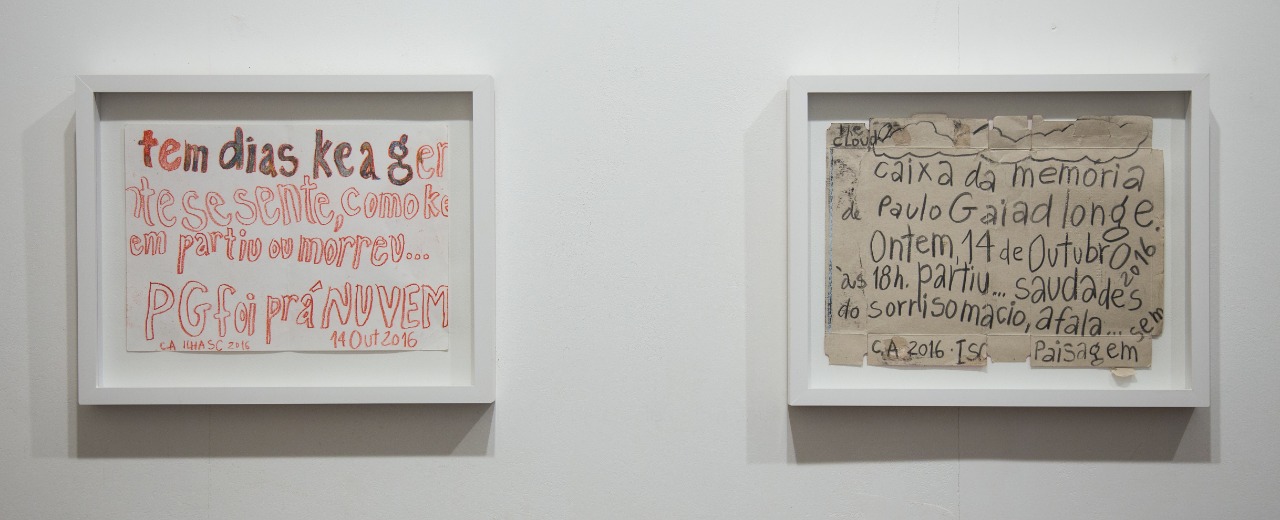 tem dias ke a gen
nte se sesente, como ke
em partiu ou morreu...
PG foi prá NUVEM
C.A ILHASC 2016
14 Out 2016
The
CLOUD
caixa da memória
de Paulo Gaiad longe.
Ontem, 14 de Outubro 2016.
às 18h. partiu... saudades
do sorriso macio, a fala... sem
C.A 2016 · ISC
Paisagem